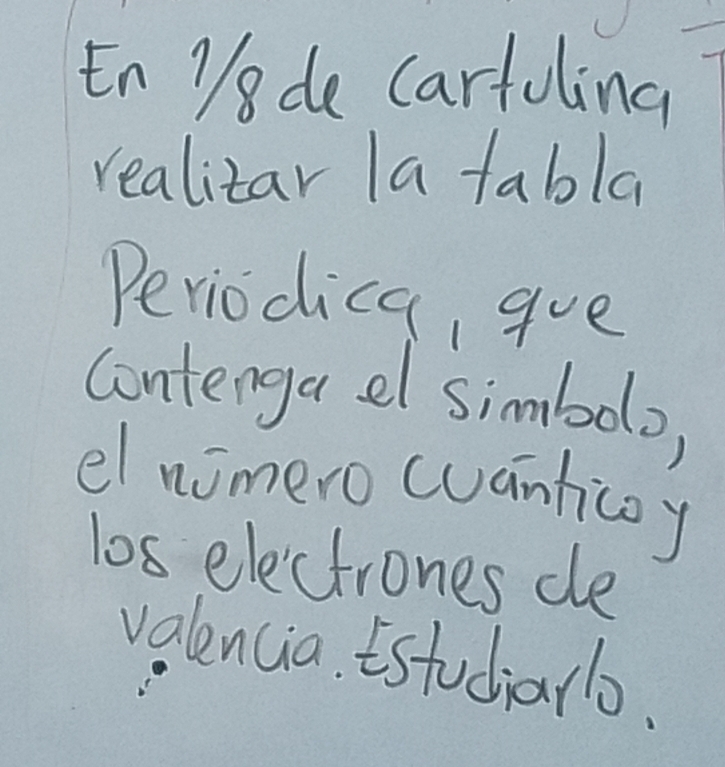 En 1/8 de cartulina
realizar la tabla
Periódica, que
contenga el simbolo,
el número cuántico y
los electrones de
valencia. Estudiarlo.